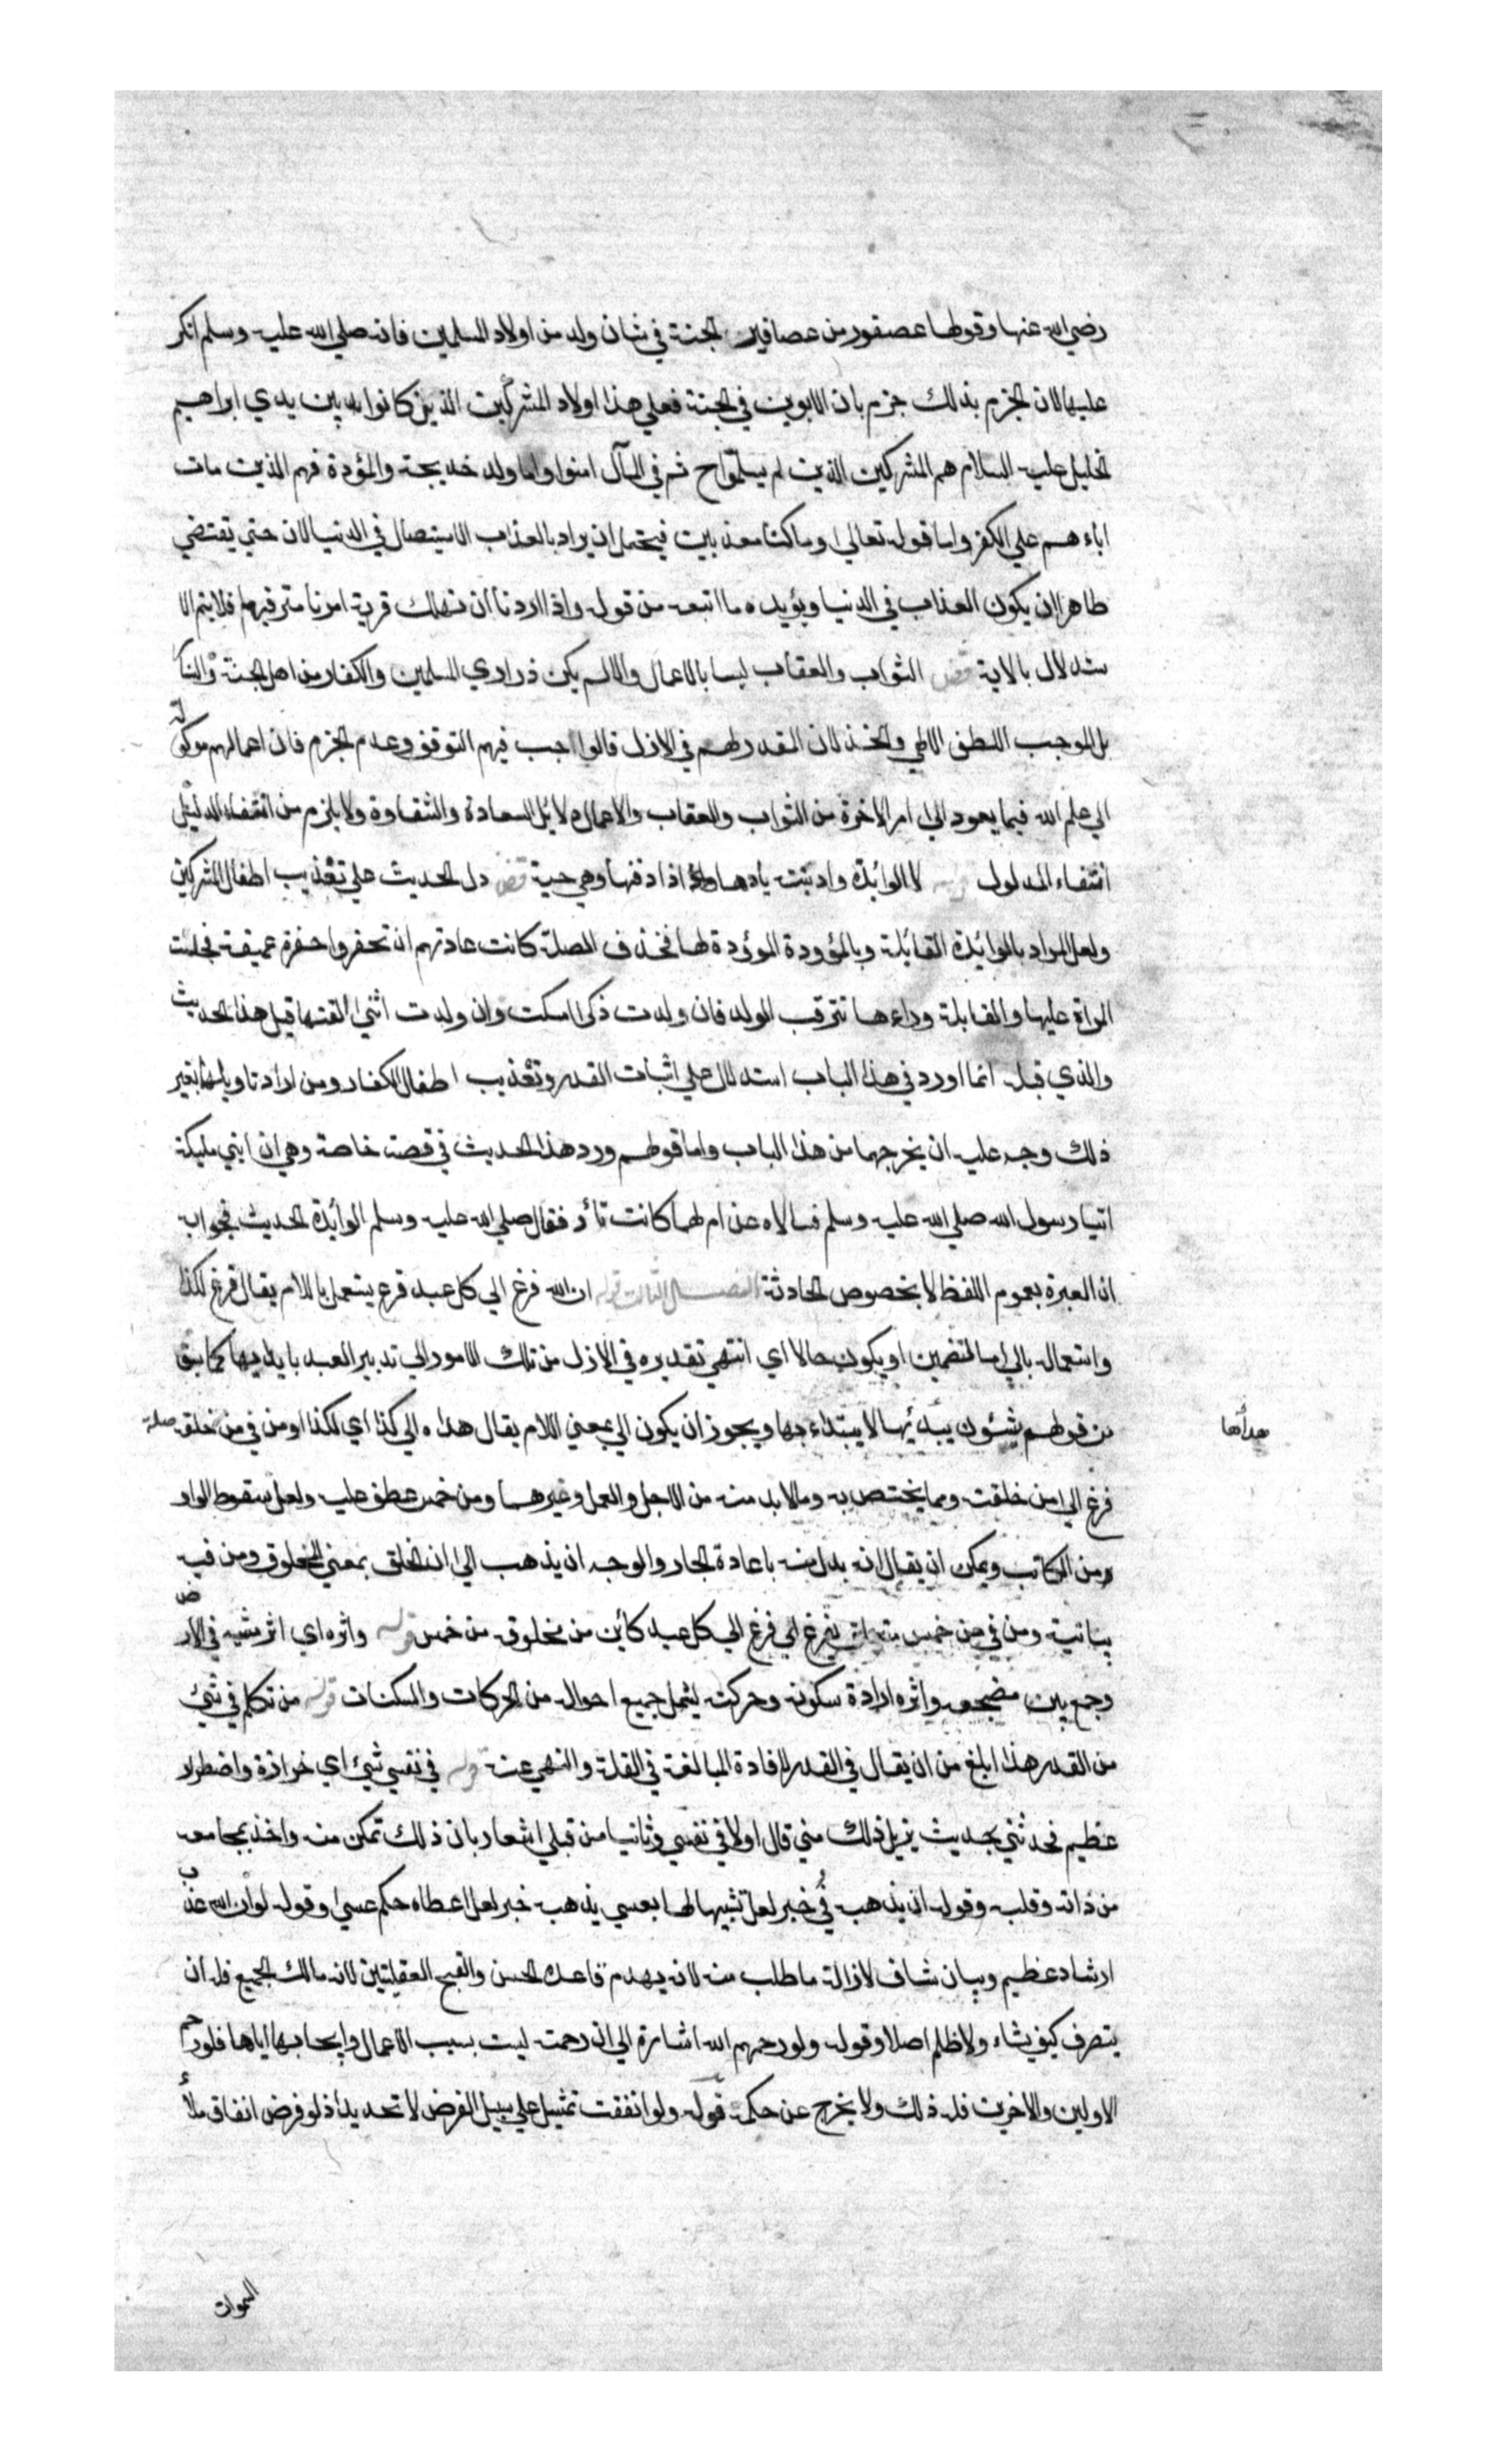 رضي الله عنها وقولها عصفور من عصافير الجنة في شان ولد من اولاد المسلمين فانه صلي الله عليه وسلم انكر
عليها لان الجزم بذلك جزم بان الابوين في الجنة فعلي هذا اولاد المشركين الذين كانوا بين يدي ابراهيم
الخليل عليه السلام هم المشركين الذين لم يسلموا ح ثم في المآل امنوا واما ولد خديجة والمؤدة فهم الذين مات
اباءهم علي الكفر واما قوله تعالي وما كنا معذبين فيحتمل ان يراد بالعذاب الاستيصال في الدنيا لان حتي يقتضي
ظاهرا ان يكون العذاب في الدنيا ويؤيده ما اتبعه من قوله واذا اردنا ان نهلك قرية امرنا مترفيها فلا يتم الا
ستدلال بالاية قض الثواب والعقاب ليسا بالاعمال والا لم يكن ذراري المسلمين والكفار من اهل الجنة والنار
بل الموجب اللطف الالهي والخذلان المقدر لهم في الازل قالواجب فيهم التوقف وعدم الجزم فان اعمالهم موكولة
الي علم الله فيما يعود الي امر الاخرة من الثواب والعقاب والاعمال دلائل السعادة والشقاوة ولا يلزم من انتفاء الدليل
انتفاء المدلول قوله الوائدة وادبنته يأدها وأدا اذا دفنها وهي حية قض دل الحديث علي تعذيب اطفال المشركين
ولعل المراد بالوائدة القابلة وبالمؤودة الموؤدة لها فحذف الصلة كانت عادتهم ان تحفروا حفرة عميقة فجلست
المراة عليها والقابلة وراءها تترقب الولد فان ولدت ذكرا امسكت وان ولدت انثي القتها قبل هذا الحديث
والذي قبله انما اورد في هذا الباب استدلال علي اثبات القدر وتعذيب اطفال الكفار ومن اراد تاويلهما بغير
ذلك وجه عليه ان يخرجهما من هذا الباب واما قولهم ورد هذا الحديث في قصة خاصة وهي ان ابني مليكة
اتيا رسول الله صلي الله عليه وسلم فسالاه عن ام لهما كانت تأد فقال صلي الله عليه وسلم الوائدة الحديث فجوابه
ان العبرة بعموم اللفظ لا بخصوص الحادثة الفصل الثالث قوله ان الله فرغ الي كل عبد فرغ يستعمل باللام يقال فرغ لكذا
واستعماله بالي اما لتضمين او يكون حالا اي انتهي تقديره في الازل من تلك الامور الي تدبير العبد بابدايها كما سبق
من قولهم شئون يبديها لا يبتداء بها ويجوز ان يكون الي بمعني اللام يقال هداه الي كذا اي لكذا او من في من خلقه صلة
هدأها
فرغ الي من خلقته ومما يختص به وما لا بد منه من الاجل والعمل وغيرهما ومن خمس عطف عليه ولعل سقوط الواو
من الكاتب ويمكن ان يقال انه بدل منه باعادة الجار والوجه ان يذهب الي ان الخلق بمعني المخلوق ومن فيه
بيانية ومن في من خمس متعلق بفرغ اي فرغ الي كل عبد كائن من مخلوقه من خمس قوله واثره اي اثر مشيه في الارض
وجمع بين مضجعه واثره ارادة سكونه وحركته ليشمل جميع احواله من الحركات والسكنات قوله من تكلم في شئ
من القدر هذا ابلغ من ان يقال في القدر لافادة المبالغة في القلة والنهي عنه قوله في نفسي شئ اي حزازة واضطراد
عظيم فحدثني بحديث يزيل ذلك مني قال اولا في نفسي وثانيا من قبلي اشعار بان ذلك تمكن منه واخذ بمجامعه
من ذاته وقلبه وقوله ان يذهب في خبر لعل تشبيها لها بعسي يذهب خبر لعل اعطاه حكم عسي او قوله لو ان الله عذب
ارشاد عظيم وبيان شاف لازالة ما طلب منه لانه يهدم قاعدة الحسن والقبح العقليتين لانه مالك الجميع فله ان
يتصرف كيف يشاء ولا ظلم اصلا وقوله ولو رحمهم الله اشارة الي ان رحمته ليست بسبب الاعمال وايجابها اياها فلو رحم
الاولين والاخرين فله ذلك ولا يخرج عن حكمة قوله ولو انفقت تمثيل علي سبيل الفرض لا تحديد اذ لو فرض انفاق ملأ
السموات